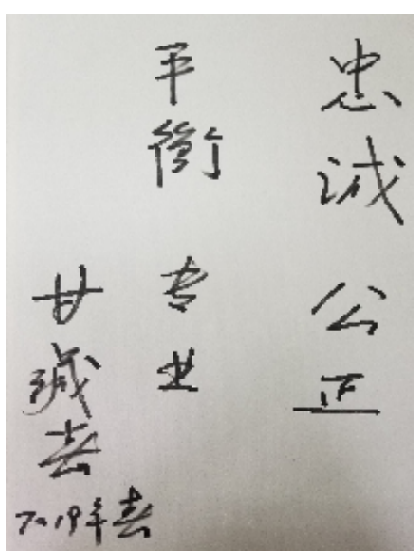 忠诚 公正
平衡 专业
2019年春